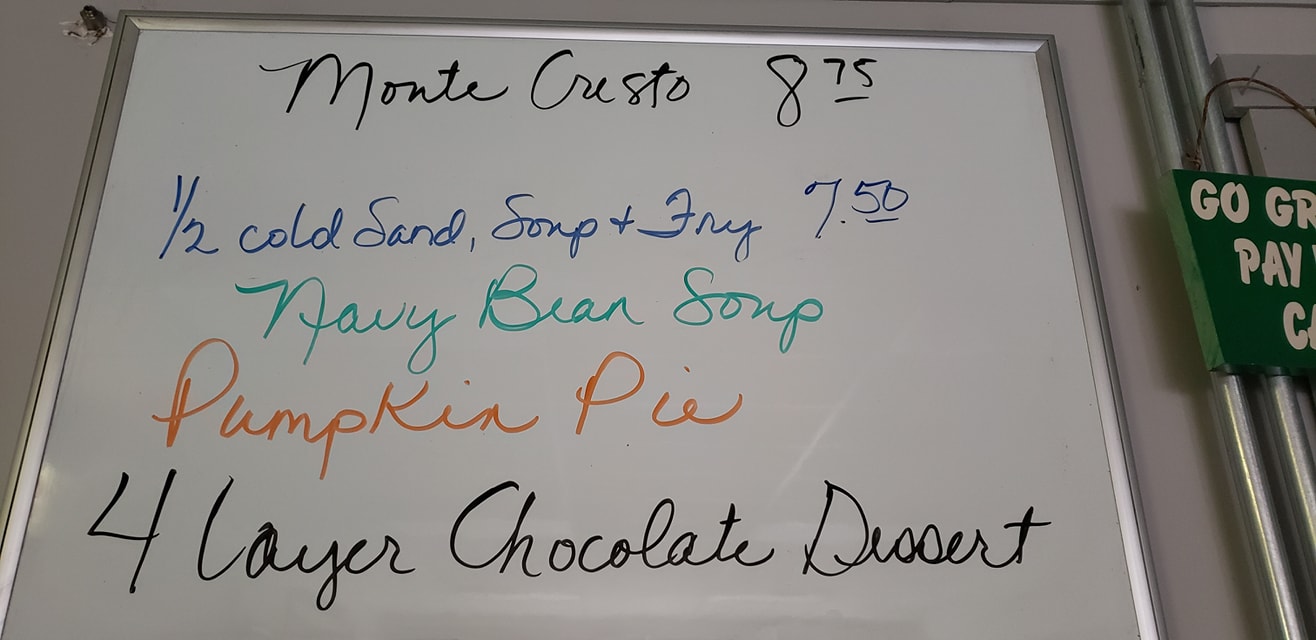 Monte Cristo 8 75
1/2 cold Sand, Soup + Fry 7.50
Navy Bean Soup
Pumpkin Pie
4 Layer Chocolate Dessert
GO GR
PAY